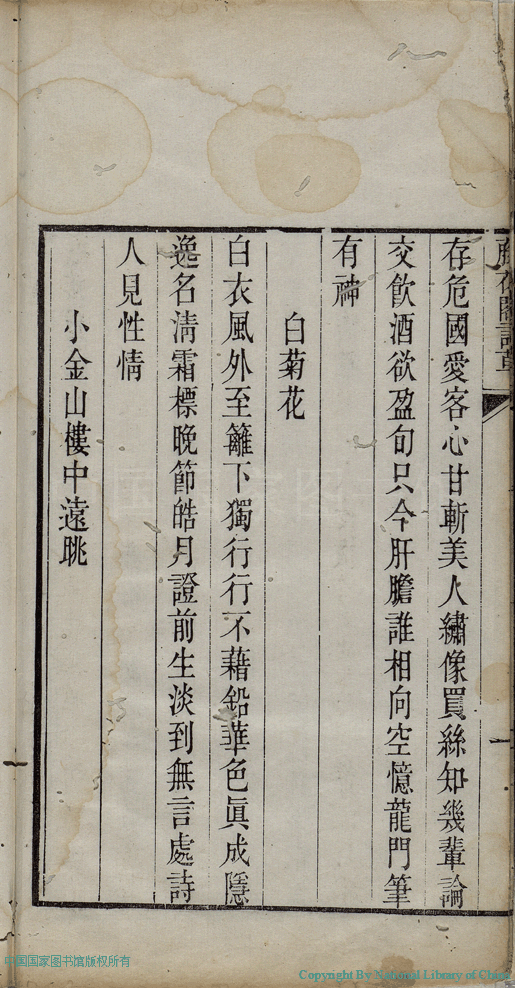 存危國愛客心甘斬美人繡像買絲知幾輩論
交飲酒欲盈旬只今肝膽誰相向空憶龍門筆
有神
白菊花
白衣風外至籬下獨行行不藉鉛華色眞成隱
逸名淸霜標晚節皓月證前生淡到無言處詩
人見性情
小金山樓中遠眺
中国国家图书馆版权所有
Copyright By National Library of China